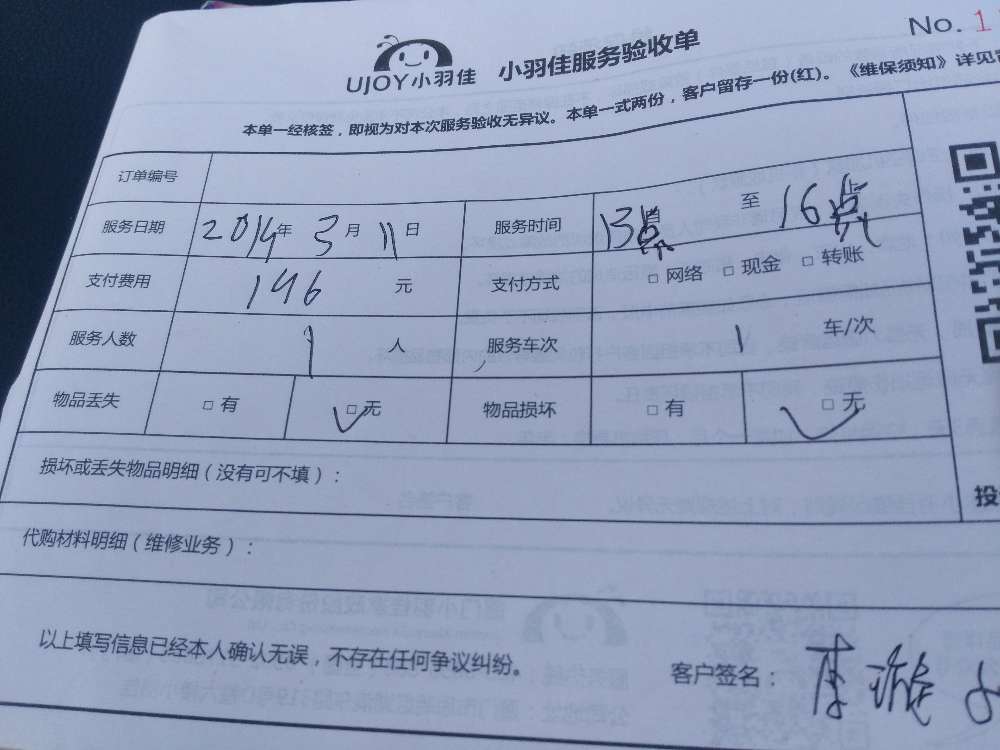 No. 1
UJOY小羽佳 小羽佳服务验收单
本单一经核签，即视为对本次服务验收无异议。本单一式两份，客户留存一份(红)。《维保须知》详见
订单编号
服务日期 2019年 3月 11日 服务时间 13点 至 16点
支付费用 196 元 支付方式 □ 网络 □ 现金 □ 转账
服务人数 1 人 服务车次 1 车/次
物品丢失 □ 有 □ 无 物品损坏 □ 有 □ 无
损坏或丢失物品明细（没有可不填）：
投
代购材料明细（维修业务）：
以上填写信息已经本人确认无误，不存在任何争议纠纷。 客户签名：